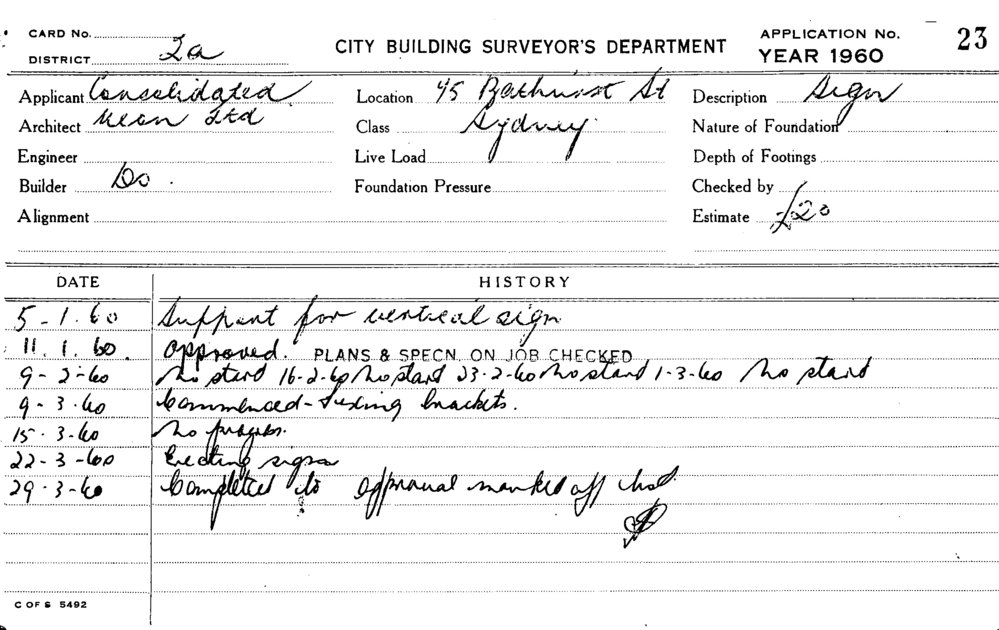 CARD No.
DISTRICT 2a
CITY BUILDING SURVEYOR'S DEPARTMENT
APPLICATION No. 23
YEAR 1960
Applicant Consolidated
Architect Neon Ltd
Engineer
Builder Do.
Alignment
Location 45 Bathurst St
Class Sydney.
Live Load
Foundation Pressure
Description Sign
Nature of Foundation
Depth of Footings
Checked by
Estimate £20
DATE HISTORY
5-1.60 Support for vertical sign
11.1.60. approved. PLANS & SPECN. ON JOB CHECKED
9-2-60 No start 16-2-60 No start 23-2-60 No start 1-3-60 No start
9-3-60 Commenced - fixing brackets.
15.3-60 No progress.
22-3-60 Erecting sign
29.3-60 Completed to approval marked off
C OF S 5492